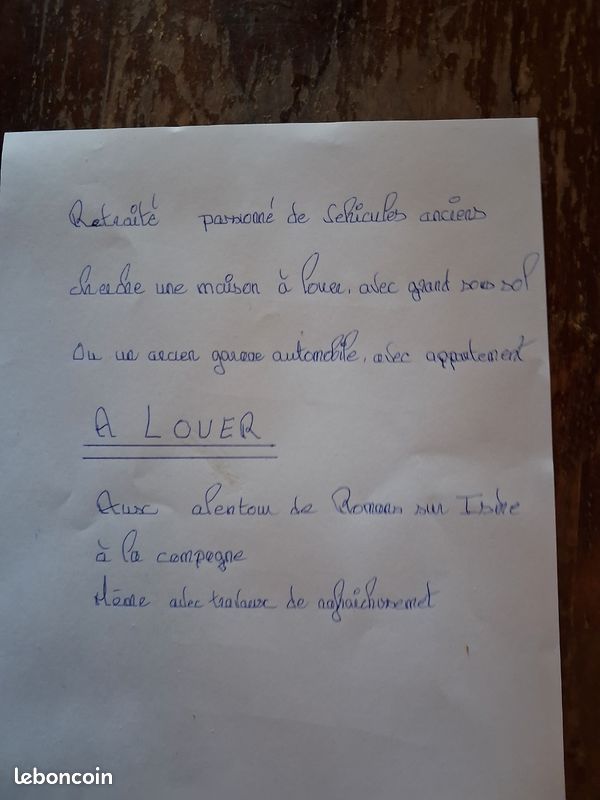 Retraité passionné de Vehicules anciens
cherche une maison à louer, avec grand sous sol
Ou un ancien garage automobile, avec appartement
A LOUER
Aux alentour de Romans sur Isère
à la compagne
Même avec travaux de rafraichissemet
leboncoin